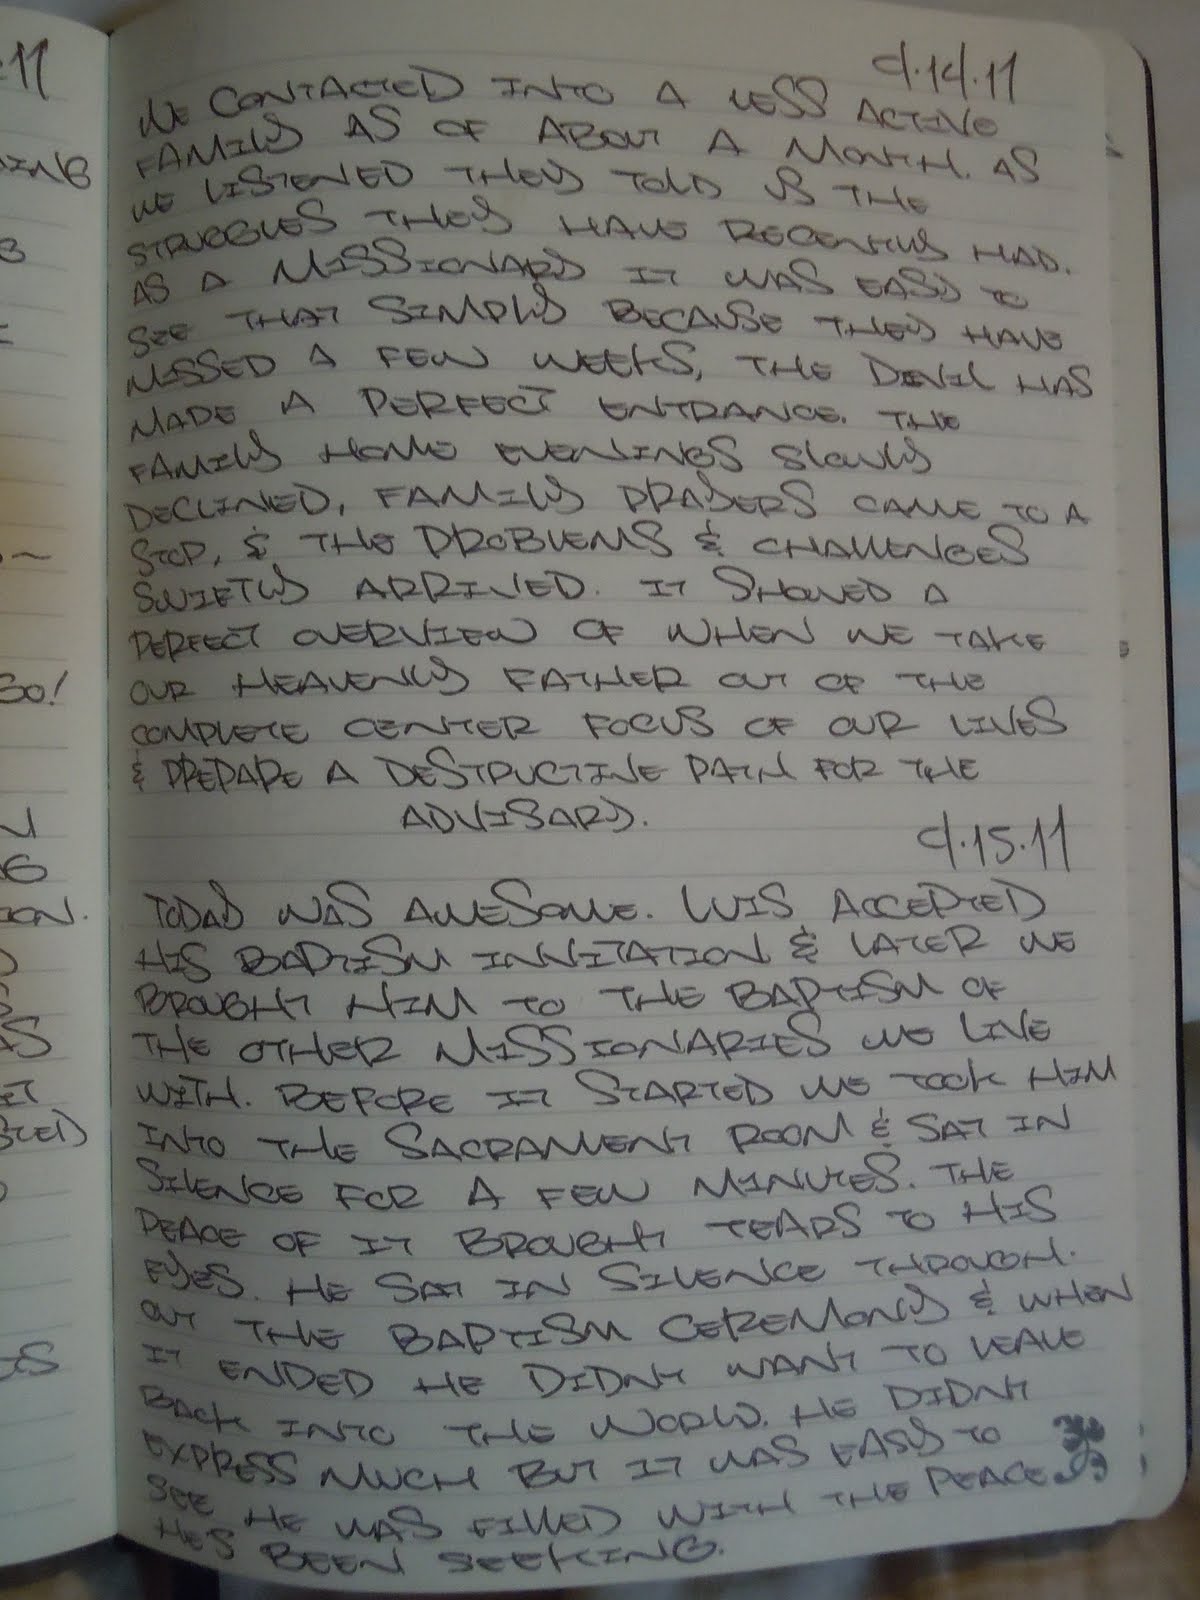 4.14.11
WE CONTACTED INTO A LESS ACTIVE
FAMILY AS OF ABOUT A MONTH. AS
WE LISTENED THEY TOLD US THE
STRUGGLES THEY HAVE RECENTLY HAD.
AS A MISSIONARY IT WAS EASY TO
SEE THAT SIMPLY BECAUSE THEY HAVE
MISSED A FEW WEEKS, THE DEVIL HAS
MADE A PERFECT ENTRANCE. THE
FAMILY HOME EVENINGS SLOWLY
DECLINED, FAMILY PRAYERS CAME TO A
STOP, & THE PROBLEMS & CHALLENGES
SWIFTLY ARRIVED. IT SHOWED A
PERFECT OVERVIEW OF WHEN WE TAKE
OUR HEAVENLY FATHER OUT OF THE
COMPLETE CENTER FOCUS OF OUR LIVES
& PREPARE A DESTRUCTIVE PATH FOR THE
ADVISARY.
4.15.11
TODAY WAS AWESOME. LUIS ACCEPTED
HIS BAPTISM INVITATION & LATER WE
BROUGHT HIM TO THE BAPTISM OF
THE OTHER MISSIONARIES WE LIVE
WITH. BEFORE IT STARTED WE TOOK HIM
INTO THE SACRAMENT ROOM & SAT IN
SILENCE FOR A FEW MINUTES. THE
PEACE OF IT BROUGHT TEARS TO HIS
EYES. HE SAT IN SILENCE THROUGH-
OUT THE BAPTISM CEREMONY & WHEN
IT ENDED HE DIDNT WANT TO LEAVE
BACK INTO THE WORLD. HE DIDNT
EXPRESS MUCH BUT IT WAS EASY TO
SEE HE WAS FILLED WITH THE PEACE
HES BEEN SEEKING.